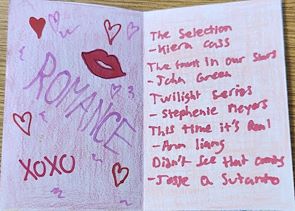 ROMANCE
XOXO
The Selection
- Kiera Cass
The fault in our Stars
- John Green
Twilight Series
- Stephenie Meyers
This time it's Real
- Ann liang
Didn't See that coming
- Jesse Q Sutanto